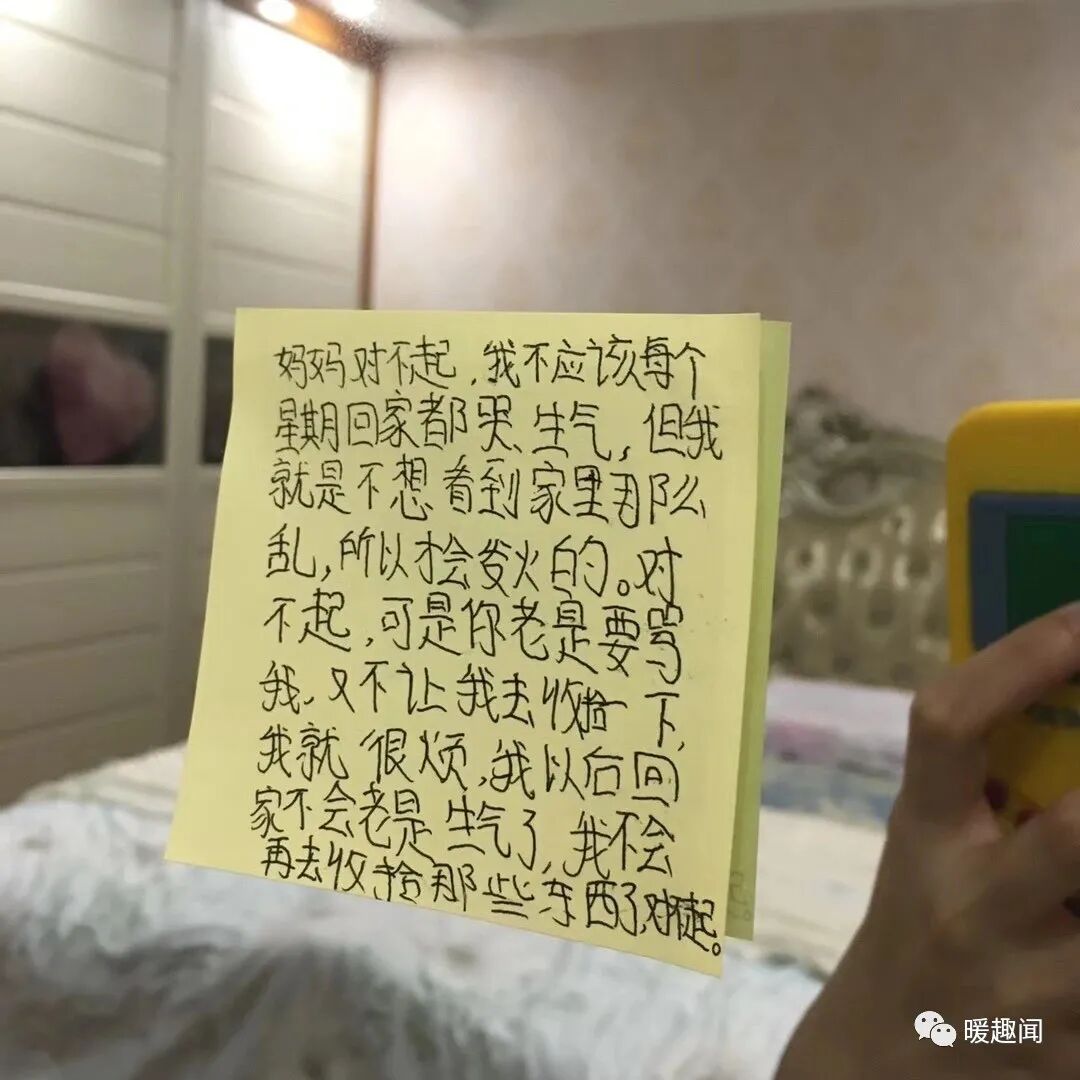 妈妈对不起，我不应该每个
星期回家都哭、生气，但我
就是不想看到家里那么
乱，所以才会发火的。对
不起，可是你老是要骂
我，又不让我去收拾一下，
我就很烦，我以后回
家不会老是生气了，我不会
再去收拾那些东西了，对不起。
暖趣闻